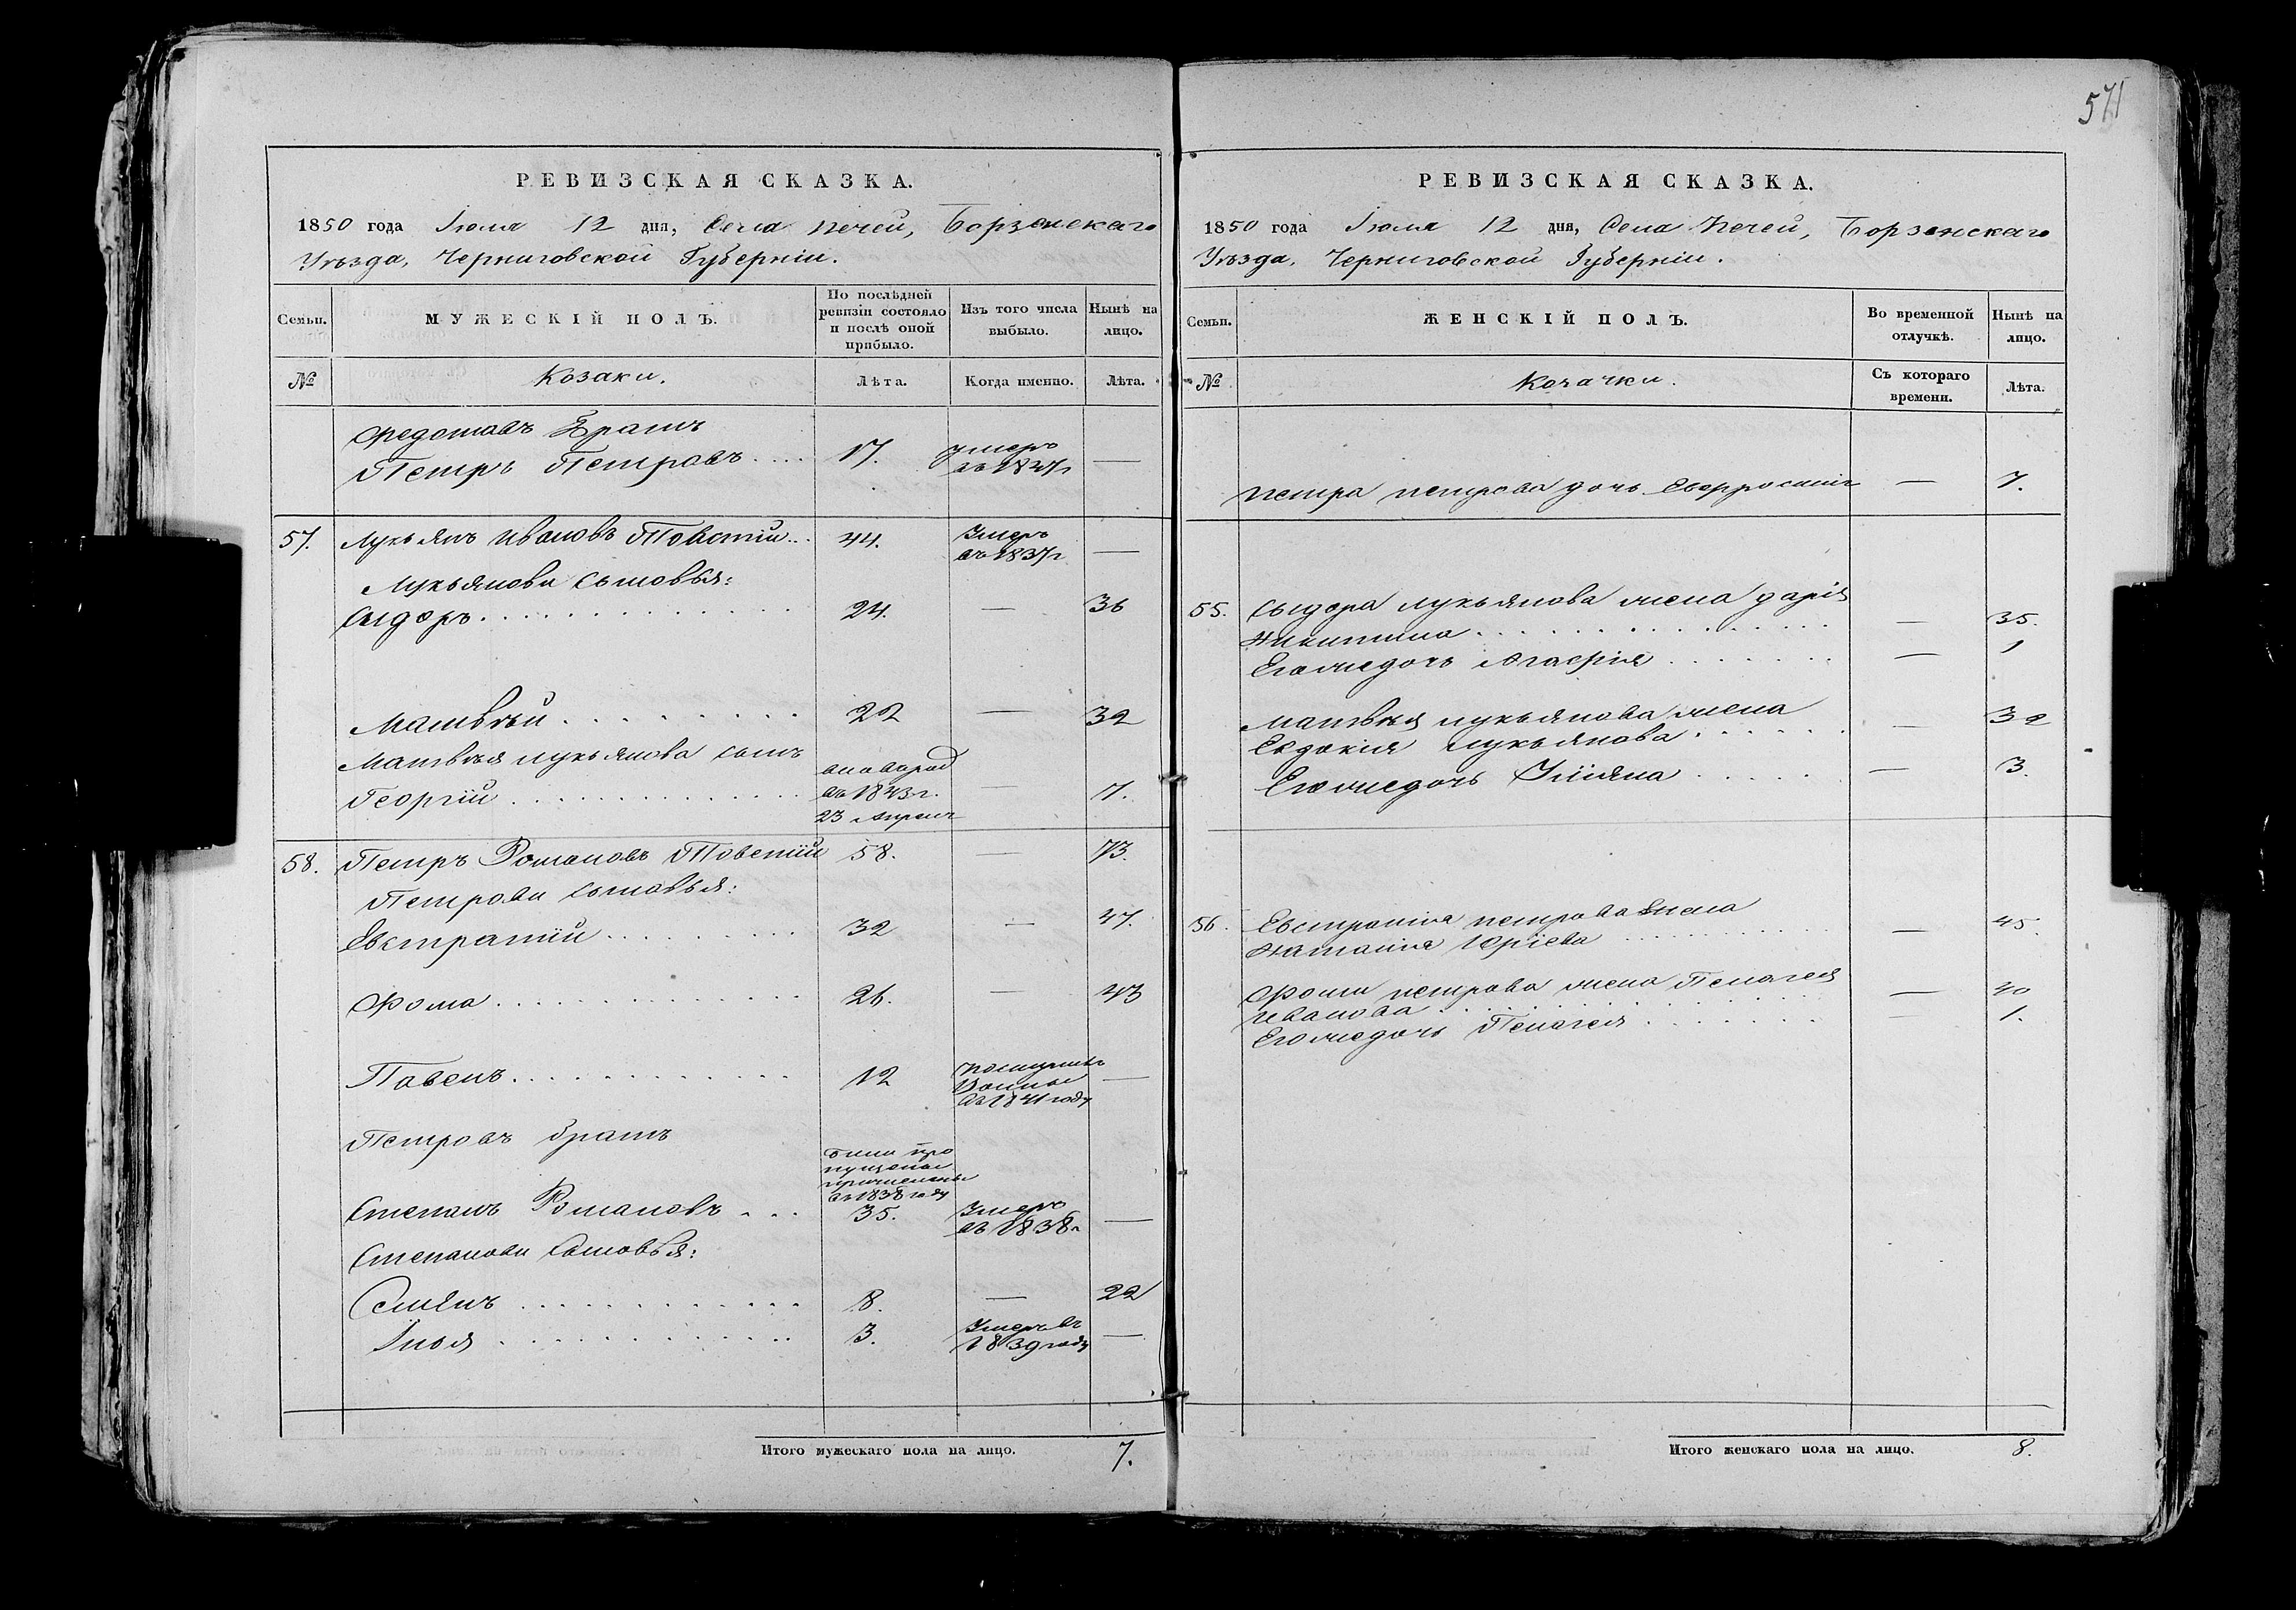 РЕВИЗСКАЯ СКАЗКА.
1850 года Іюля 12 дня, Села Печей, Борзенскаго
Уѣзда, Черниговской Губерніи.
Семьи.
МУЖЕСКІЙ ПОЛЪ.
По послѣдней ревизіи состояло и послѣ оной прибыло.
Изъ того числа выбыло.
Нынѣ на лицо.
№
Козаки.
Лѣта.
Когда именно.
Лѣта.
Федотовъ Братъ
Петръ Петровъ 17. Умеръ —
57. Лукьянъ Ивановъ Товстій 44. Умеръ въ 1837г —
Лукьянови сыновья:
Сидоръ 24. — 36
Матвѣй 22 — 32
Матвѣя лукьянова сынъ
Георгій
въ 1843г.
23 Апреля
— 7.
58. Петръ Романовъ Товстій 58. — 73.
Петрови сыновья:
Евстратій 32 — 47.
Фома 26. — 43
Павелъ 12
въ 1841 году
—
Петровъ братъ
были про
пущены
причислены
въ 1838 году
Степанъ Романовъ 35. Умеръ въ 1838г —
Степанови Сыновья:
Семенъ 8. — 22
Илья 3. Умеръ въ 1839 году —
Итого мужескаго пола на лицо. 7.
571
РЕВИЗСКАЯ СКАЗКА.
1850 года Іюля 12 дня, Села Печей, Борзенскаго
Уѣзда, Черниговской Губерніи.
Семьи.
ЖЕНСКІЙ ПОЛЪ.
Во временной отлучкѣ.
Нынѣ на лицо.
№
Козачки.
Съ котораго времени.
Лѣта.
Петра петрова дочь Евфросинія — 7.
55. Сыдора лукьянова жена дарія
Никитина — 35.
Егожедочь Агафія — 1
Матвѣя лукьянова жена
Евдокія лукьянова — 32
Егожедочь Уліяна — 3.
56. Евстратія петрова жена
Наталія Юріева — 45.
Фоми петрова жена Пелагея
Иванова — 40
Егожедочь Пелагея — 1.
Итого женскаго пола на лицо. 8.